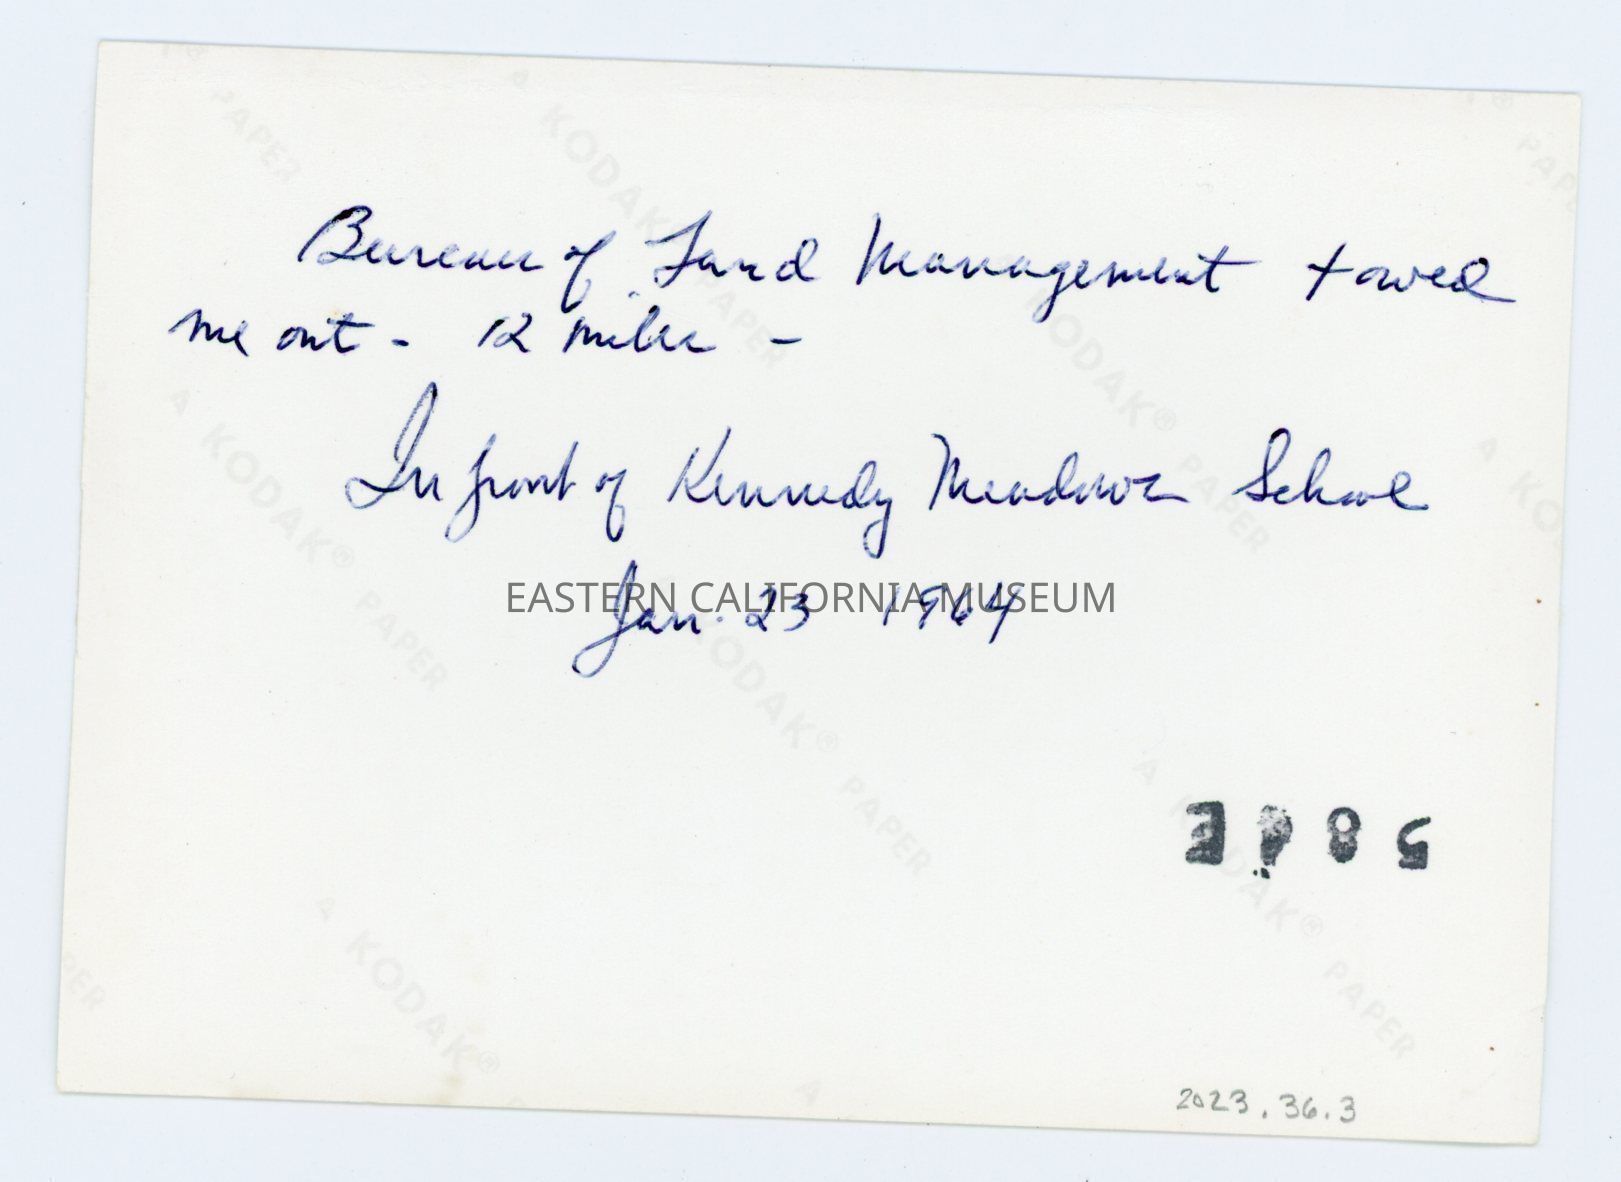 Bureau of Land Management towed
me out - 12 miles -
In front of Kennedy Meadows School
Jan. 23 1964
EASTERN CALIFORNIA MUSEUM
2023.36.3
A KODAK® PAPER